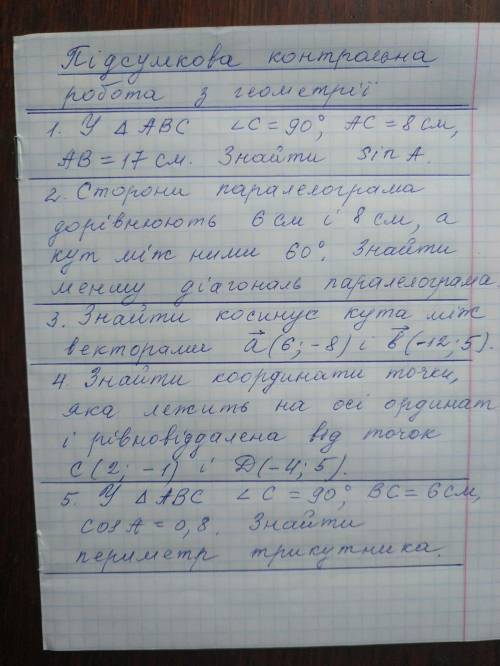 Підсумкова контрольна
робота з геометрії
1. У △ABC ∠C = 90°, AC = 8 см,
AB = 17 см. Знайти sin A.
2. Сторони паралелограма
дорівнюють 6 см і 8 см, а
кут між ними 60°. Знайти
меншу діагональ паралелограма.
3. Знайти косинус кута між
векторами a⃗ (6; -8) і b⃗ (-12; 5).
4. Знайти координати точки,
яка лежить на осі ординат
і рівновіддалена від точок
C (2; -1) і D (-4; 5).
5. У △ABC ∠C = 90°, BC = 6 см,
cos A = 0,8. Знайти
периметр трикутника.